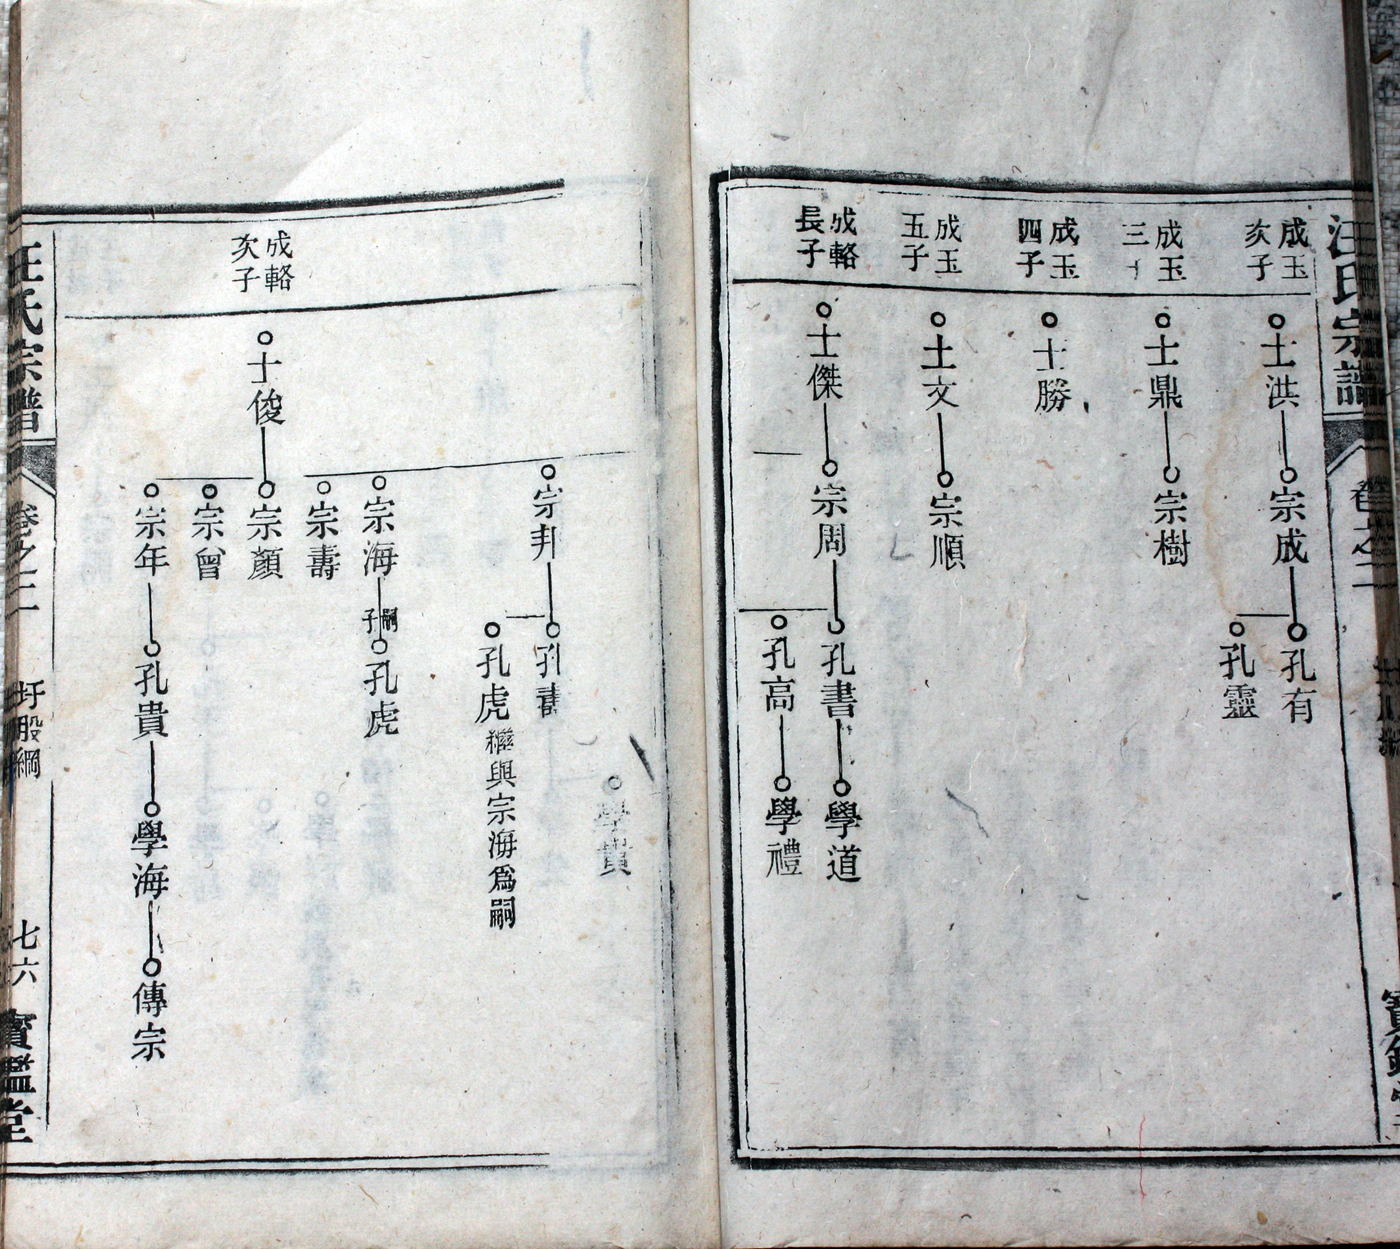 汪氏宗譜
卷之二
成玉
次子
士洪
宗成
孔有
孔靈
成玉
三子
士鼎
宗樹
成玉
四子
士勝
成玉
五子
士文
宗順
成輅
長子
士傑
宗周
孔書
學道
孔高
學禮
學貴
宗邦
孔壽
孔虎 繼與宗海爲嗣
宗海
嗣子
孔虎
宗壽
成輅
次子
士俊
宗顏
宗曾
宗年
孔貴
學海
傳宗
汪氏宗譜
卷之二
圩股綱
七六
寶鑑堂